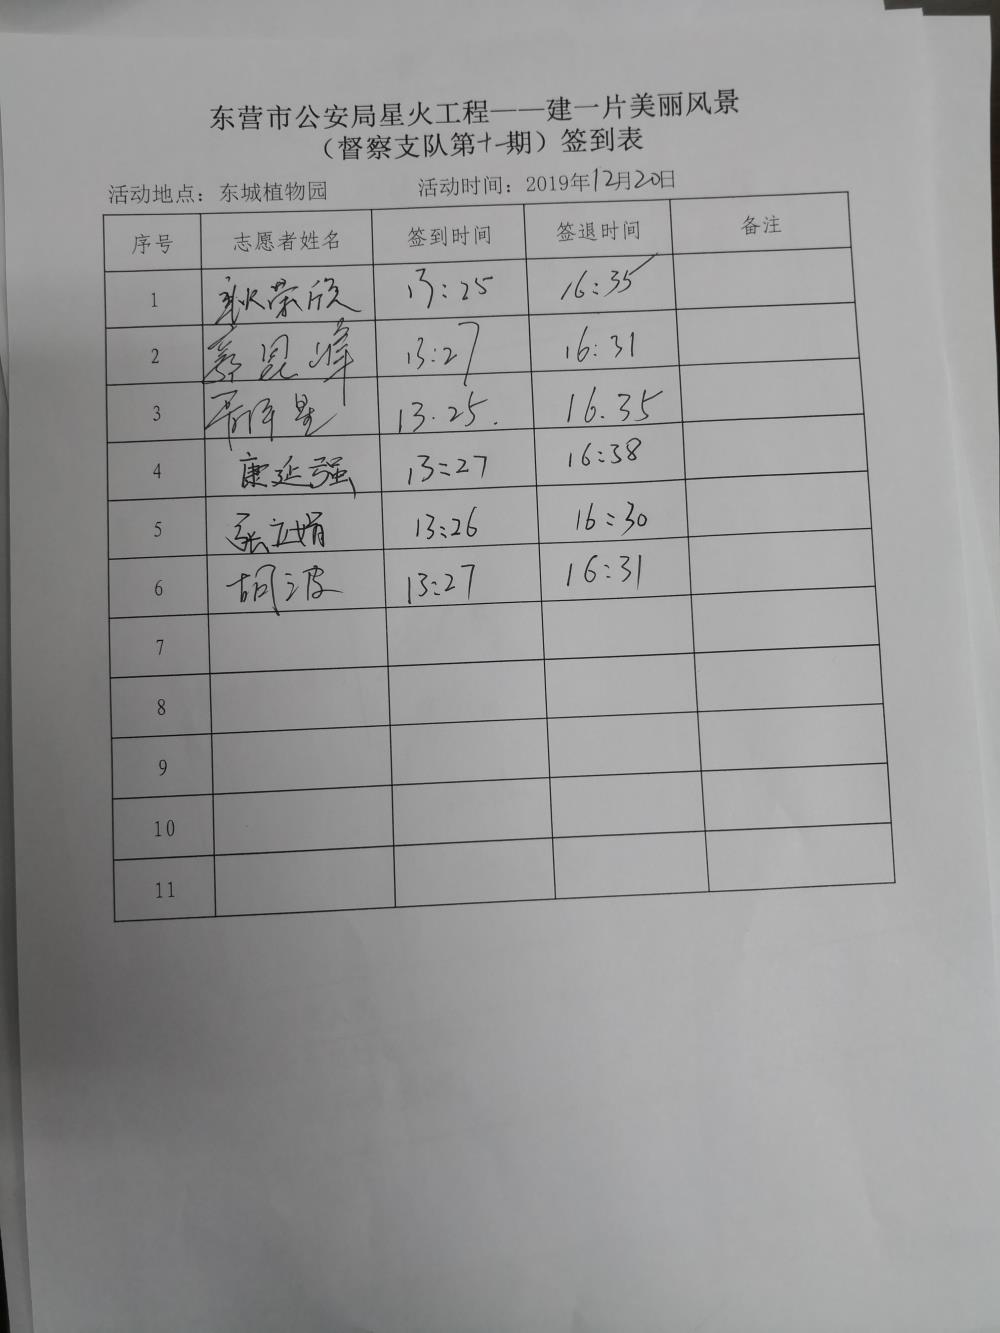 东营市公安局星火工程——建一片美丽风景
（督察支队第十一期）签到表
活动地点：东城植物园 活动时间：2019年12月20日
序号 志愿者姓名 签到时间 签退时间 备注
1 荣欣 13:25 16:35
2 昆峰 13:27 16:31
3 星 13.25. 16.35
4 康延强 13:27 16:38
5 张立娟 13:26 16:30
6 胡波 13:27 16:31
7
8
9
10
11